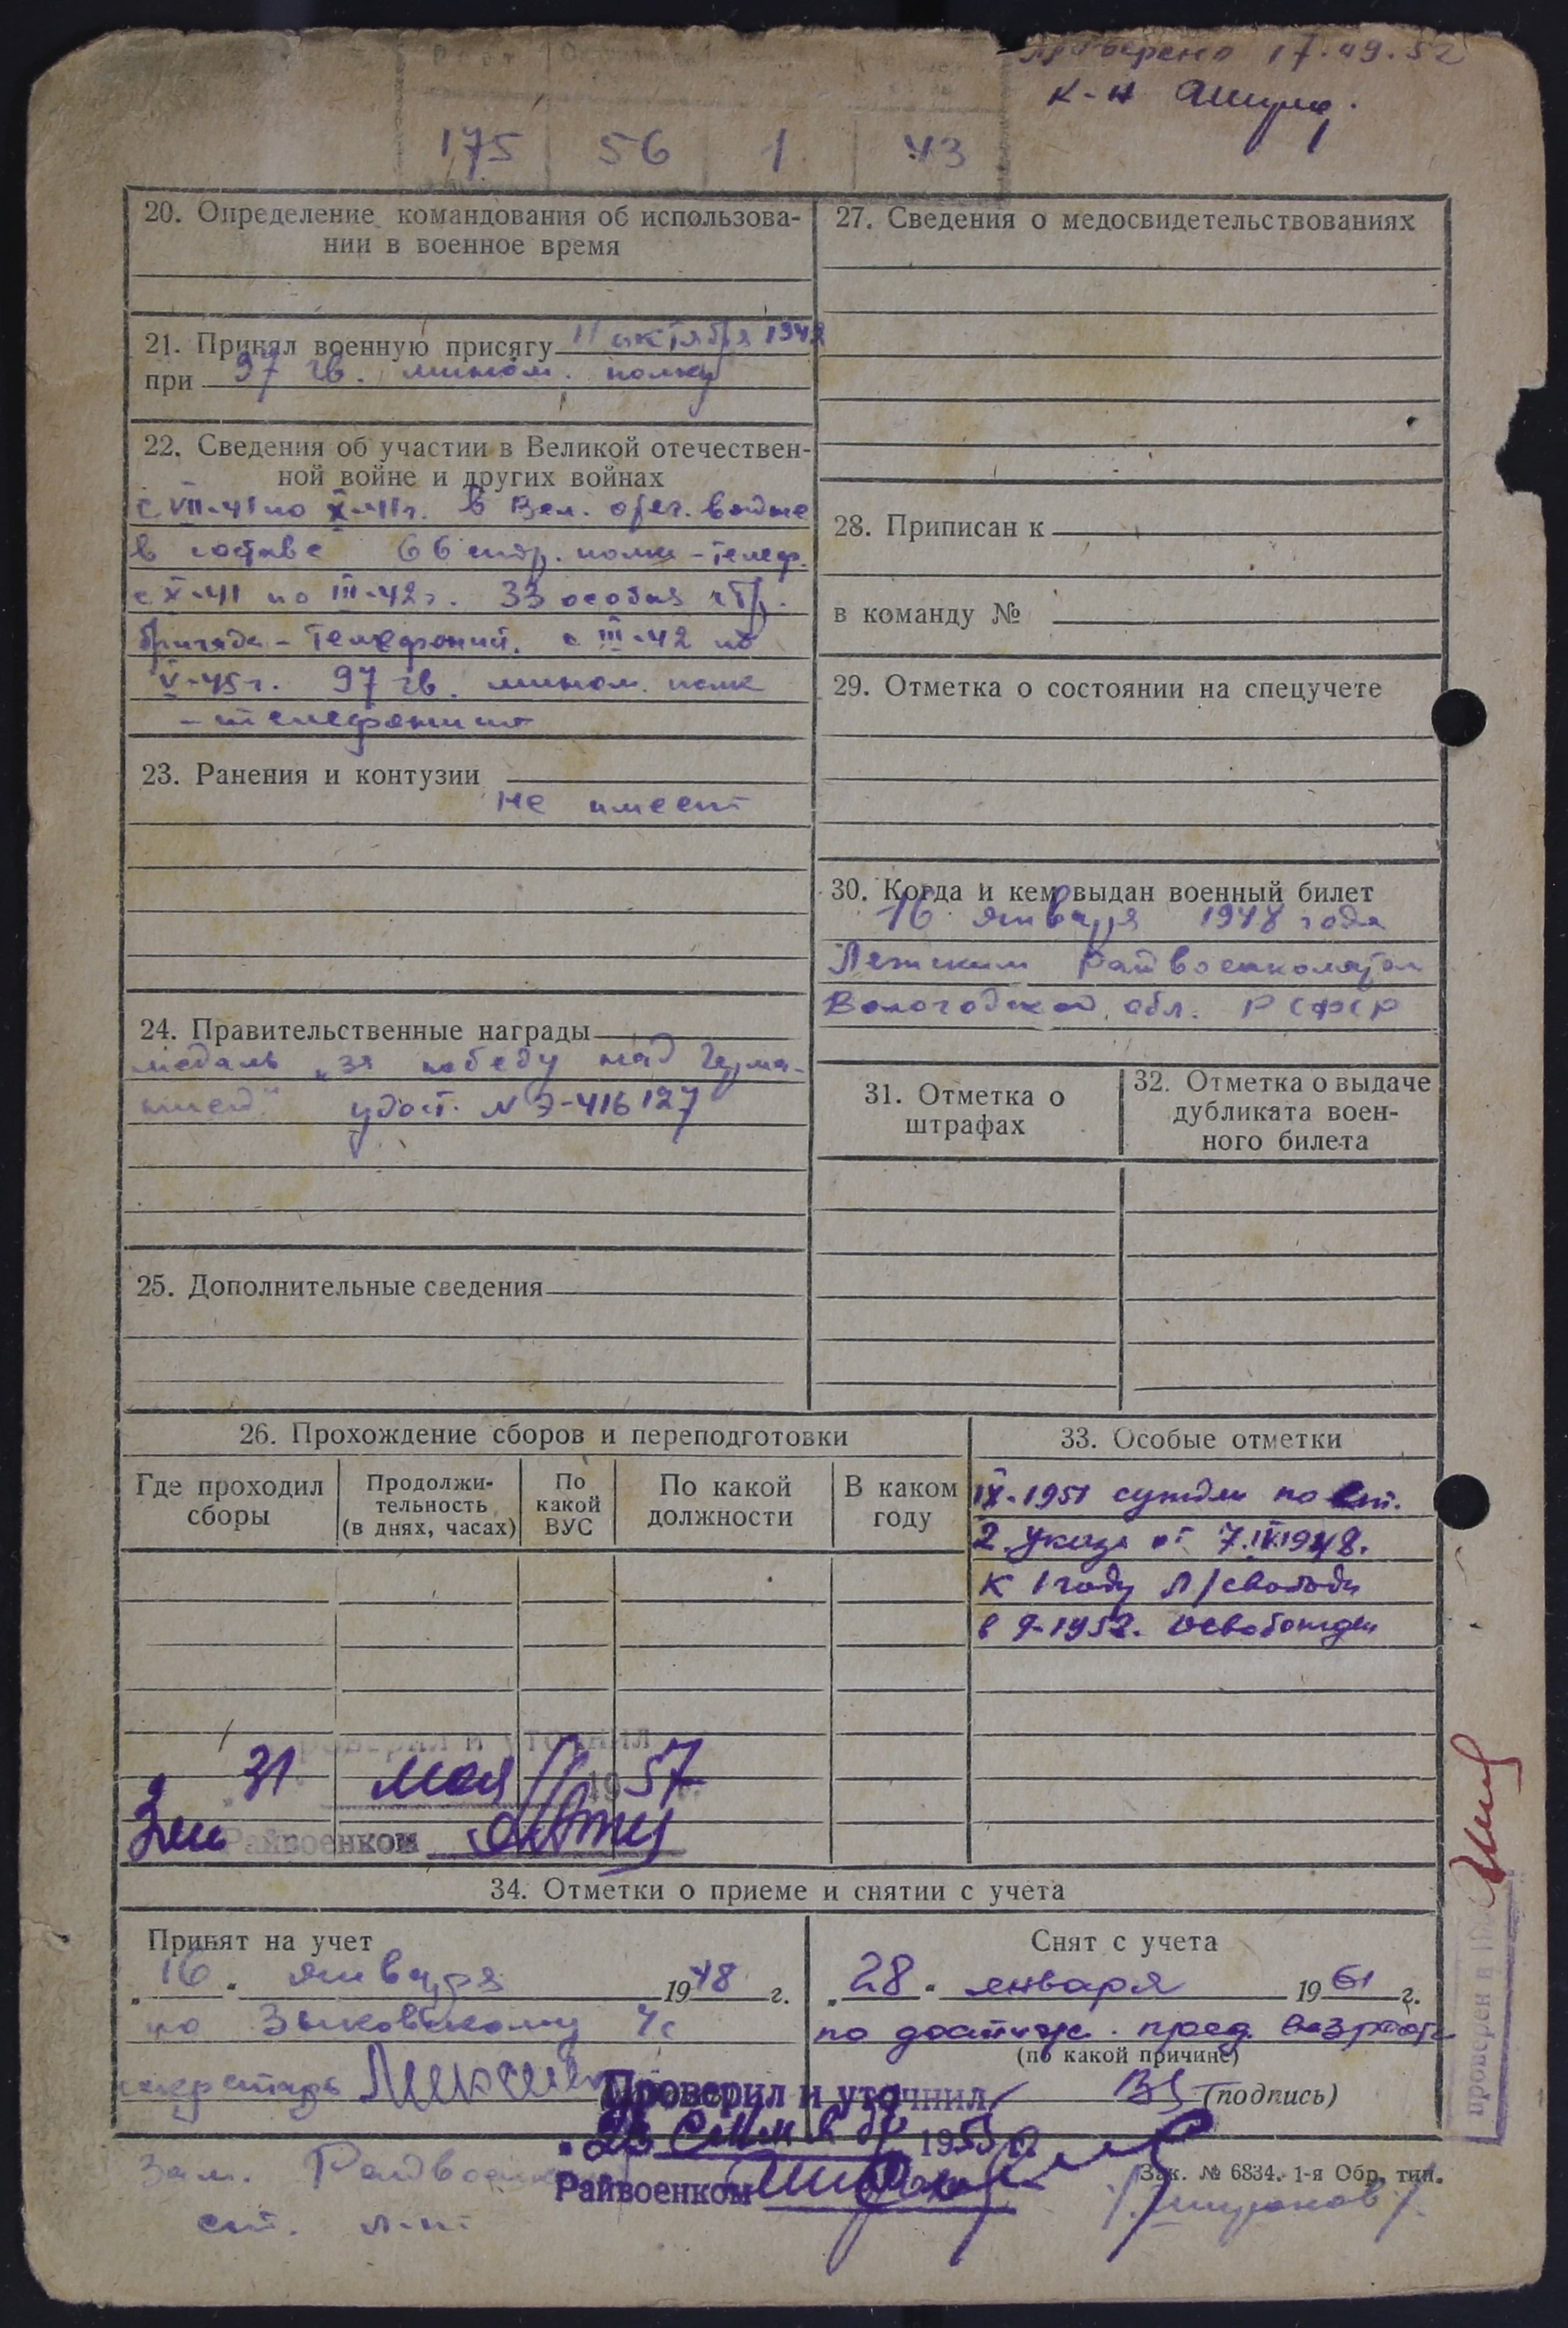 проверено 17.09.52
к-н
Рост
175 56 1 43
20. Определение командования об использова-
нии в военное время
21. Принял военную присягу 11 октября 1942
при 97 гв. мином. полку
22. Сведения об участии в Великой отечествен-
ной войне и других войнах
с VII-41 по X-41г. в Вел. отеч. войне
в составе 66 стр. полка - телеф.
с X-41 по III-42г. 33 особая стр.
бригада - телефонист. с III-42 по
V-45г. 97 гв. мином. полк
- телефонист
23. Ранения и контузии
не имеет
24. Правительственные награды
медаль „за победу над Герма-
нией" удост. № Э-416127
25. Дополнительные сведения
27. Сведения о медосвидетельствованиях
28. Приписан к
в команду №
29. Отметка о состоянии на спецучете
30. Когда и кем выдан военный билет
16 января 1948 года
Лежским Райвоенкоматом
Вологодской обл. РСФСР
31. Отметка о
штрафах
32. Отметка о выдаче
дубликата воен-
ного билета
26. Прохождение сборов и переподготовки
Где проходил
сборы
Продолжи-
тельность
(в днях, часах)
По
какой
ВУС
По какой
должности
В каком
году
33. Особые отметки
IX-1951 судим по ст.
2 Указа от 7.IV.1948.
к 1 году л/свободы
в 9-1952. освобожден
Проверил и уточнил
31 мая 1957
Зам Райвоенком
34. Отметки о приеме и снятии с учета
Принят на учет
„16" января 1948 г.
по Зыковскому с/с
секретарь
Снят с учета
„28" января 1961 г.
по достиж. пред. возраста
(по какой причине)
(подпись)
Проверил и уточнил
1953
Райвоенком
Зам. Райвоенкома
ст. л-нт
Зак. № 6834. 1-я Обр. тип.
проверен в